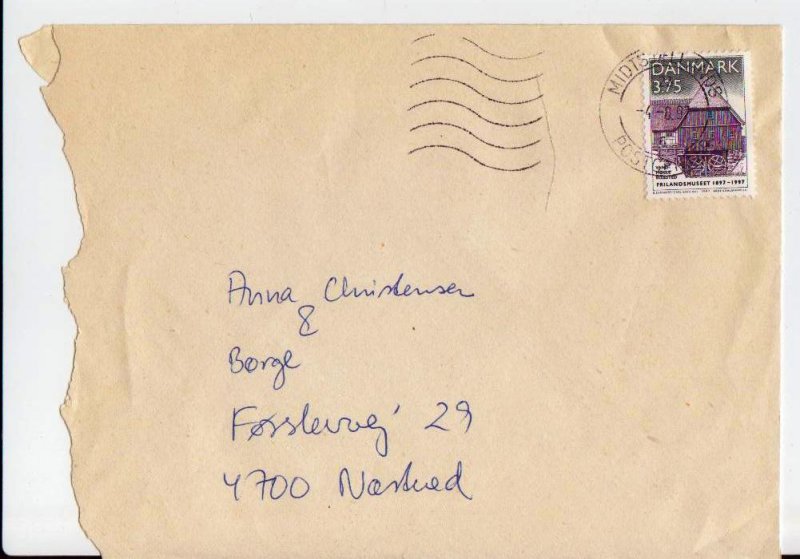 DANMARK
3.75
FRILANDSMUSEET 1897-1997
Anna Christensen
&
Børge
Førslevvej 29
4700 Næstved